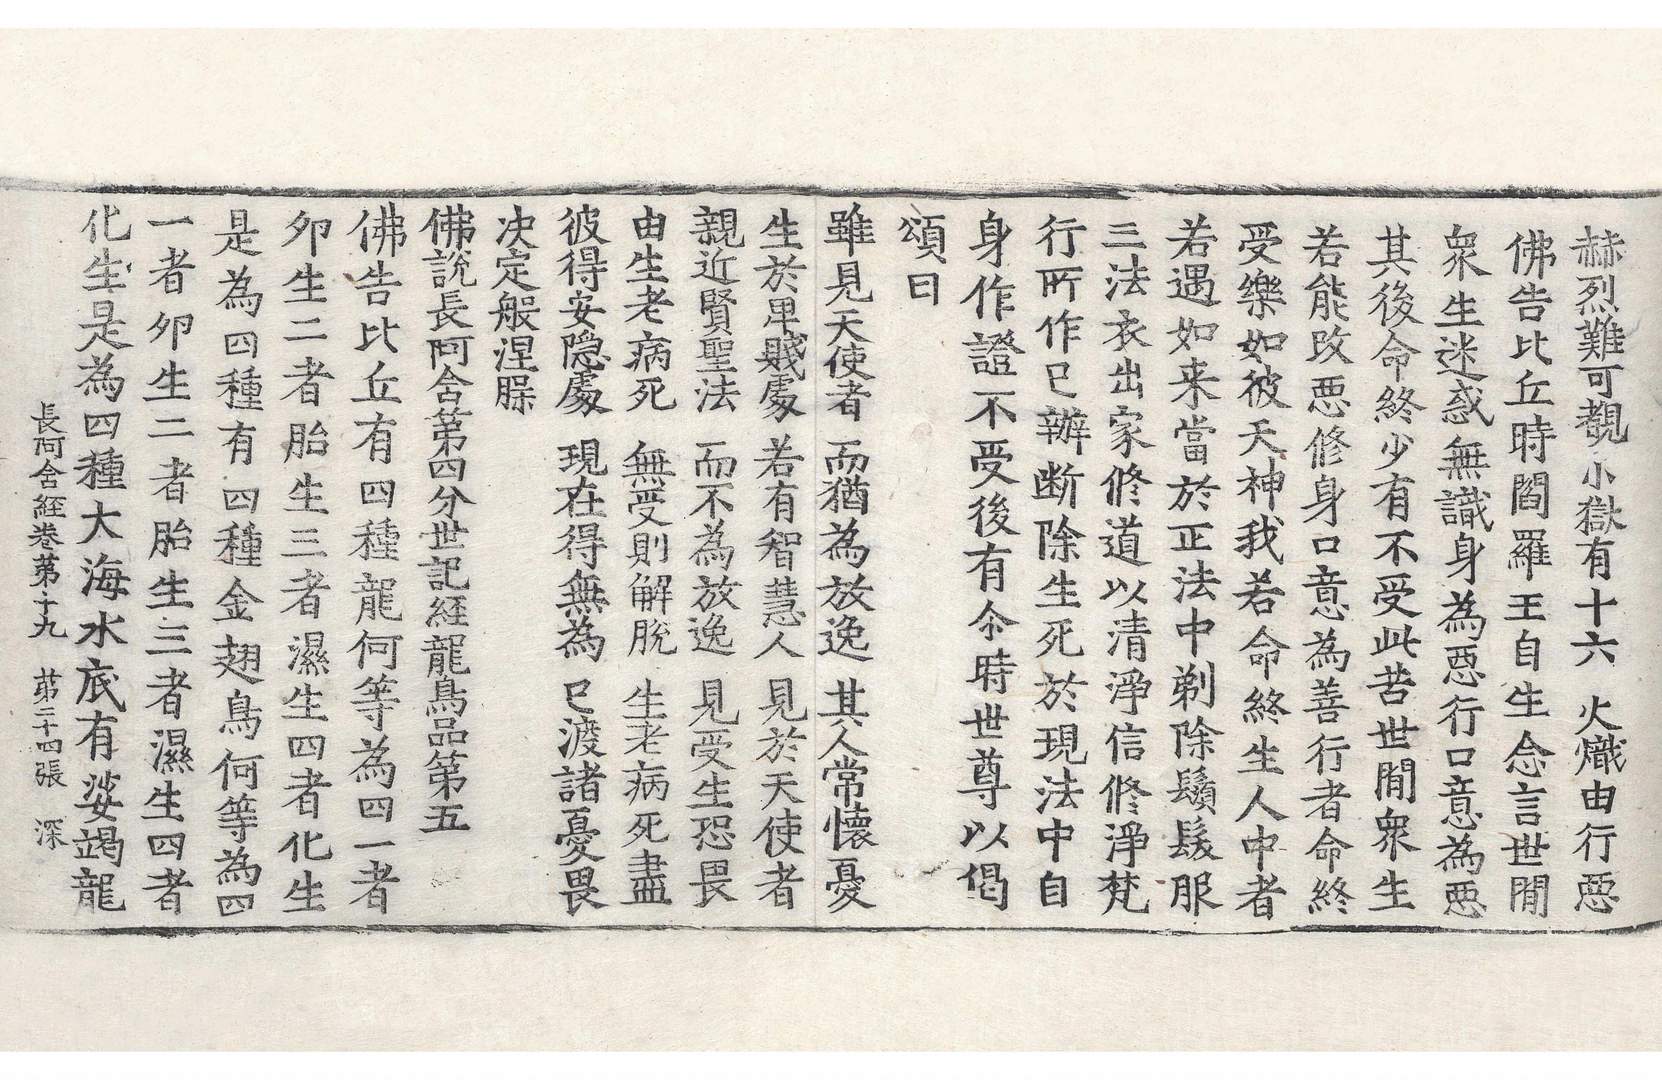 赫烈難可覩 小獄有十六 火熾由行惡
佛告比丘時閻羅王自生念言世閒
衆生迷惑無識身為惡行口意為惡
其後命終少有不受此苦世閒衆生
若能改惡修身口意為善行者命終
受樂如彼天神我若命終生人中者
若遇如来當於正法中剃除鬚髮服
三法衣出家修道以清淨信修淨梵
行所作已辦断除生死於現法中自
身作證不受後有尒時世尊以偈
頌曰
雖見天使者 而猶為放逸 其人常懷憂
生於卑賤處 若有智慧人 見於天使者
親近賢聖法 而不為放逸 見受生恐畏
由生老病死 無受則解脫 生老病死盡
彼得安隐處 現在得無為 已渡諸憂畏
决定般涅槃
佛說長阿含第四分世記経龍鳥品第五
佛告比丘有四種龍何等為四一者
卵生二者胎生三者濕生四者化生
是為四種有四種金翅鳥何等為四
一者卵生二者胎生三者濕生四者
化生是為四種大海水底有娑竭龍
長阿含経卷苐十九 苐二十四張 深